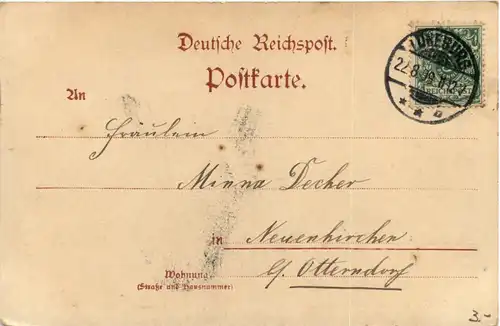 Deutsche Reichspost.
Postkarte.
LÜNEBURG
22.8.99. 11-12V.
* * b
An
Fräulein
Minna Decher
in Neuenkirchen
Wohnung
b/ Otterndorf
(Straße und Hausnummer)
3.-